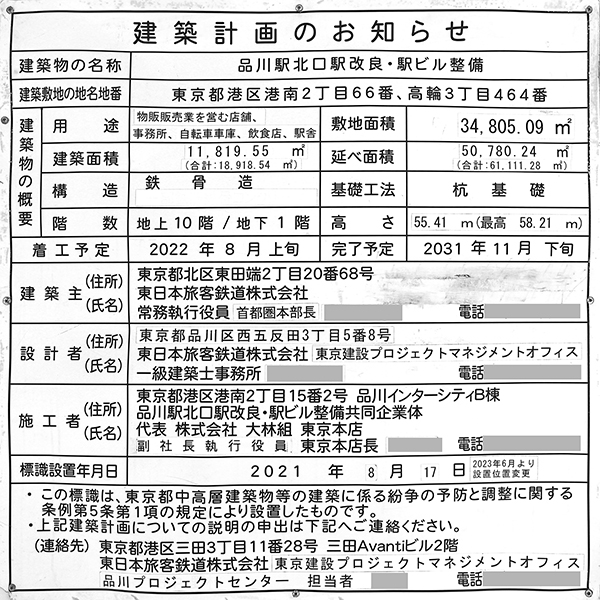 建築計画のお知らせ
建築物の名称 品川駅北口駅改良・駅ビル整備
建築敷地の地名地番 東京都港区港南2丁目66番、高輪3丁目464番
建築物の概要
用途 物販販売業を営む店舗、
事務所、自転車車庫、飲食店、駅舎
敷地面積 34,805.09 ㎡
建築面積 11,819.55 ㎡
(合計:18,918.54 ㎡)
延べ面積 50,780.24 ㎡
(合計:61,111.28 ㎡)
構造 鉄骨造 基礎工法 杭基礎
階数 地上10階/地下1階 高さ 55.41 m(最高 58.21 m)
着工予定 2022年8月上旬 完了予定 2031年11月下旬
建築主 (住所)
(氏名)
東京都北区東田端2丁目20番68号
東日本旅客鉄道株式会社
常務執行役員 首都圏本部長 電話
設計者 (住所)
(氏名)
東京都品川区西五反田3丁目5番8号
東日本旅客鉄道株式会社 東京建設プロジェクトマネジメントオフィス
一級建築士事務所 電話
施工者 (住所)
(氏名)
東京都港区港南2丁目15番2号 品川インターシティB棟
品川駅北口駅改良・駅ビル整備共同企業体
代表 株式会社 大林組 東京本店
副社長執行役員 東京本店長 電話
標識設置年月日 2021年8月17日 2023年6月より
設置位置変更
・この標識は、東京都中高層建築物等の建築に係る紛争の予防と調整に関する
条例第5条第1項の規定により設置したものです。
・上記建築計画についての説明の申出は下記へご連絡ください。
(連絡先) 東京都港区三田3丁目11番28号 三田Avantiビル2階
東日本旅客鉄道株式会社 東京建設プロジェクトマネジメントオフィス
品川プロジェクトセンター 担当者 電話